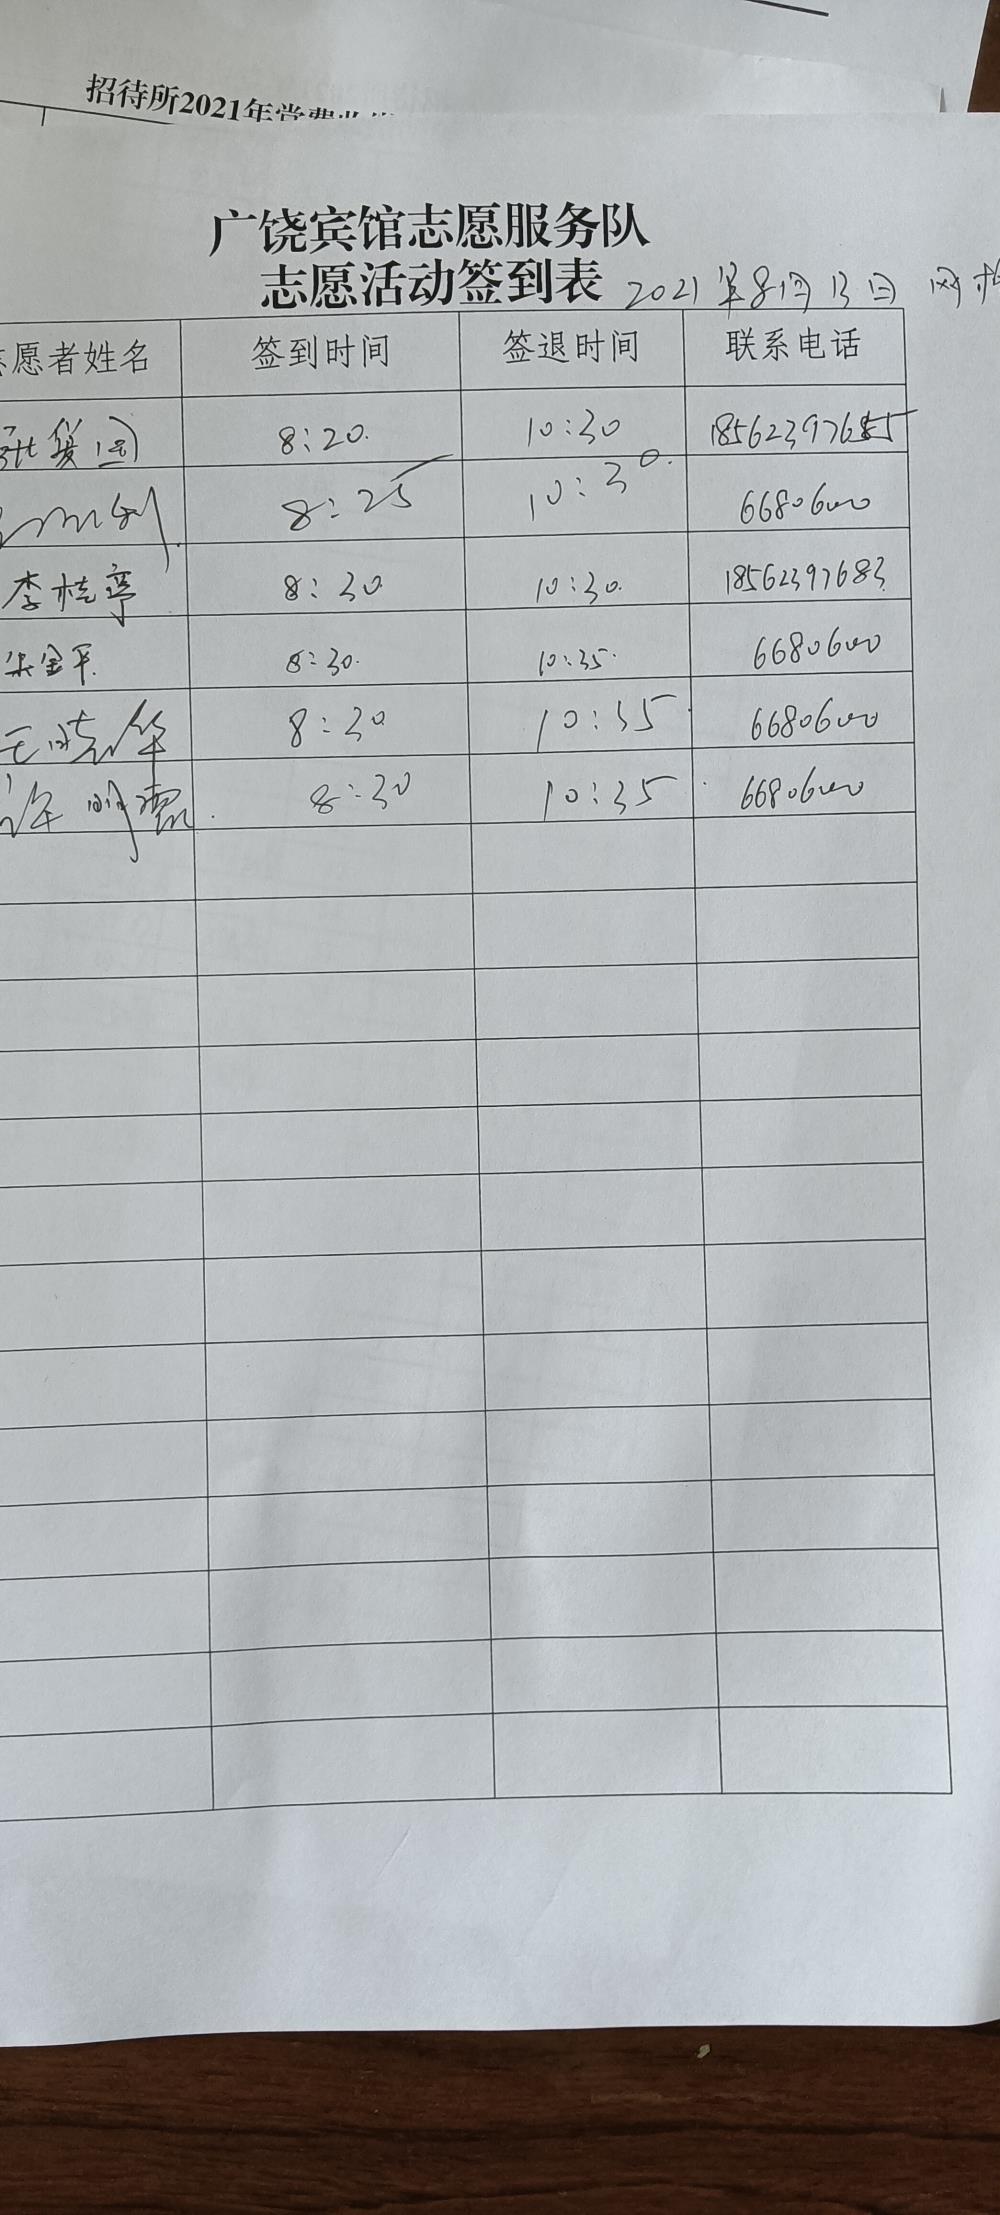 招待所2021年党费收
广饶宾馆志愿服务队
志愿活动签到表 2021年8月13日
愿者姓名 签到时间 签退时间 联系电话
8:20. 10:30 18562397685
8:25 10:30. 6680600
李桂亭 8:30 10:30. 18562397683
金平. 8:30. 10:35. 6680600
王晓华 8:30 10:35. 6680600
许明霞. 8:30 10:35. 6680600